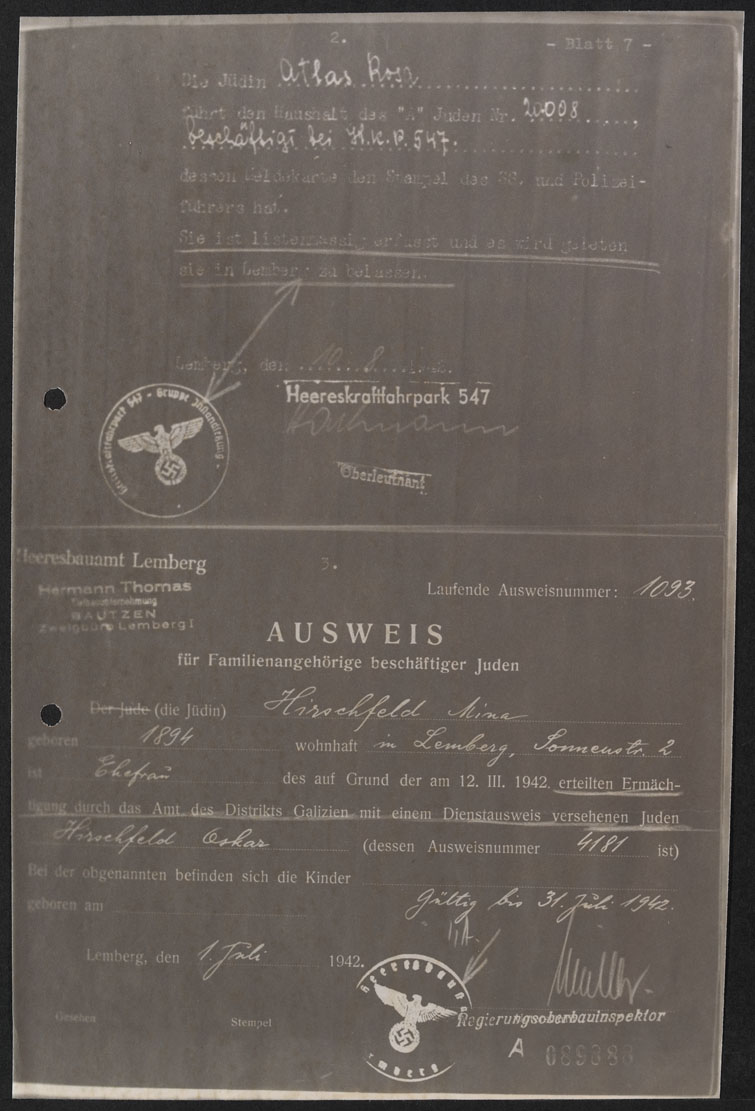 2.
- Blatt 7 -
Die Jüdin Atlas Rosa
führt den Haushalt des "A" Juden Nr. 20008
beschäftigt bei H.K.P. 547.
dessen Meldekarte den Stempel des SS. und Polizei-
führers hat.
Sie ist listenmässig erfasst und es wird gebeten
sie in Lemberg zu belassen.
Lemberg, den 10. 8.
Heereskraftfahrpark 547
Oberleutnant
Heereskraftfahrpark 547 - Gruppe
Heeresbauamt Lemberg
3.
Hermann Thomas
BAUTZEN
Zweigbüro Lemberg I
Laufende Ausweisnummer: 1093.
AUSWEIS
für Familienangehörige beschäftiger Juden
Der Jude (die Jüdin) Hirschfeld Mina
geboren 1894 wohnhaft in Lemberg, Sonnenstr. 2
ist Ehefrau des auf Grund der am 12. III. 1942. erteilten Ermäch-
tigung durch das Amt des Distrikts Galizien mit einem Dienstausweis versehenen Juden
Hirschfeld Oskar (dessen Ausweisnummer 4181 ist)
Bei der obgenannten befinden sich die Kinder
geboren am
Gültig bis 31. Juli 1942.
Lemberg, den 1. Juli 1942.
Müller
Regierungsoberbauinspektor
Gesehen
Stempel
A 089388